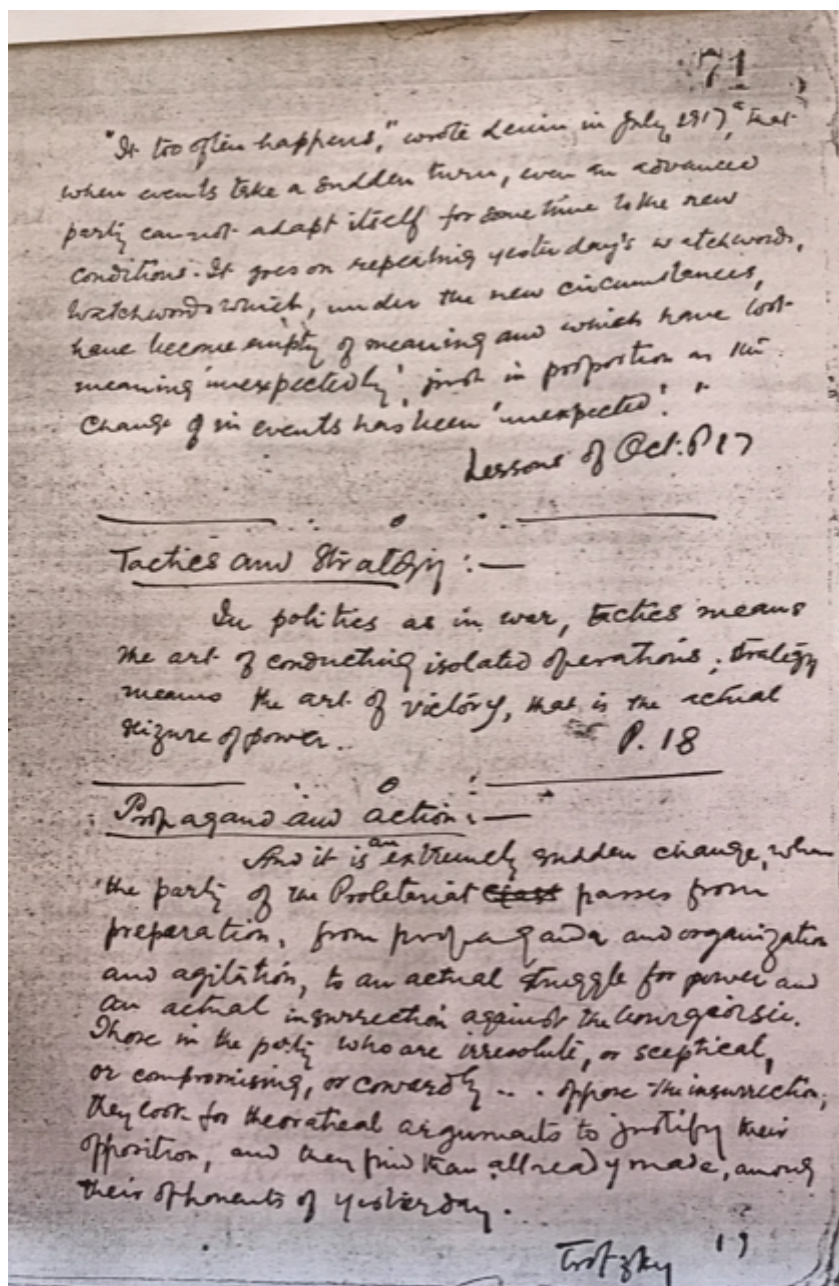 71
"It too often happens," wrote Lenin in July, 1917, "that
when events take a sudden turn, even an advanced
party cannot adapt itself for some time to the new
conditions. It goes on repeating yesterday's watchwords,
watchwords which, under the new circumstances,
have become empty of meaning and which have lost
meaning 'unexpectedly', just in proportion as the
change of in events has been 'unexpected'."
Lessons of Oct. P 17
Tactics and Strategy :—
In politics as in war, tactics means
the art of conducting isolated operations; strategy
means the art of victory, that is the actual
seizure of power.. P. 18
Propagand and action :—
And it is an extremely sudden change, when
the party of the Proletariat class passes from
preparation, from propaganda and organization
and agitation, to an actual struggle for power and
an actual insurrection against the bourgeoisie.
Those in the party who are irresolute, or sceptical,
or compromising, or cowardly ... oppose the insurrection,
they look for theoratical arguments to justify their
opposition, and they find them all ready made, among
their opponents of yesterday.
Trotzky 19